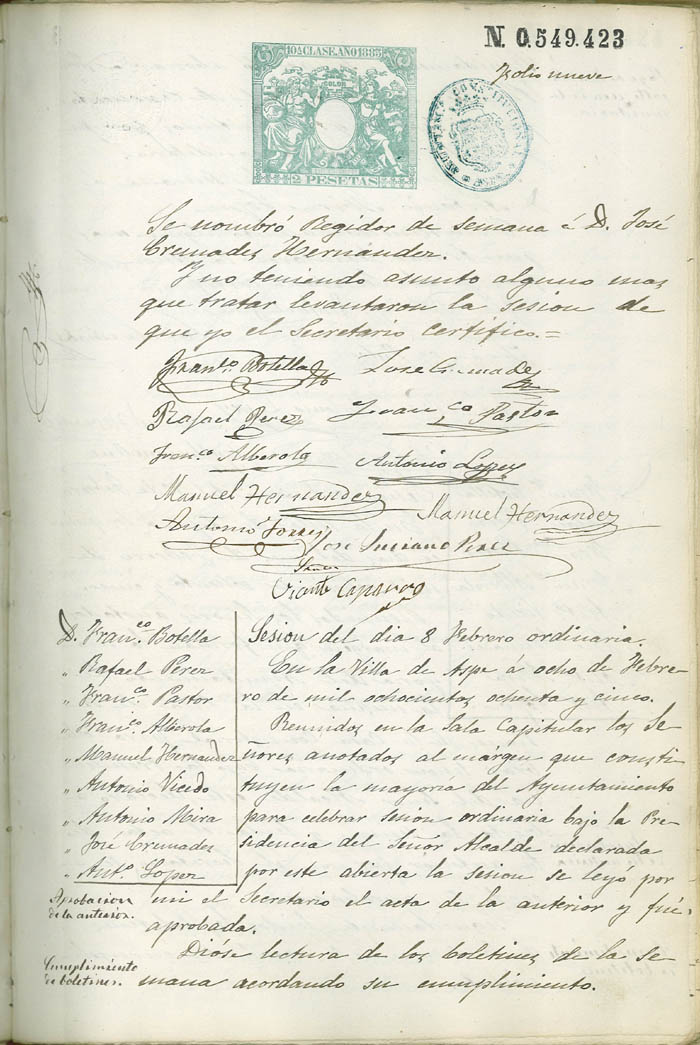 N. 0.549.423
Folio nueve
10.A CLASE. AÑO 1885
2 PESETAS
Se nombró Regidor de semana á D. José
Cremades Hernández.
Y no teniendo asunto alguno mas
que tratar levantaron la sesion de
que yo el Secretario certifico.=
Fran.co Botella José Cremades
Rafael Perez Fran.co Pastor
Fran.co Alberola Antonio Lopez
Manuel Hernandez Manuel Hernandez
Antonio Torres José Luciano Perez
Vicente
D. Fran.co Botella
„ Rafael Perez
„ Fran.co Pastor
„ Fran.co Alberola
„ Manuel Hernandez
„ Antonio Vicedo
„ Antonio Mira
„ José Cremades
„ Ant.o Lopez
Aprobacion
de la anterior.
Cumplimiento
de boletines.
Sesion del dia 8 Febrero ordinaria.
En la Villa de Aspe á ocho de Febre-
ro de mil ochocientos ochenta y cinco.
Reunidos en la Sala Capitular los Se-
ñores anotados al márgen que consti-
tuyen la mayoría del Ayuntamiento
para celebrar sesion ordinaria bajo la Pre-
sidencia del Señor Alcalde declarada
por este abierta la sesion se leyó por
mi el Secretario el acta de la anterior y fué
aprobada.
Dióse lectura de los boletines de la se-
mana acordando su cumplimiento.